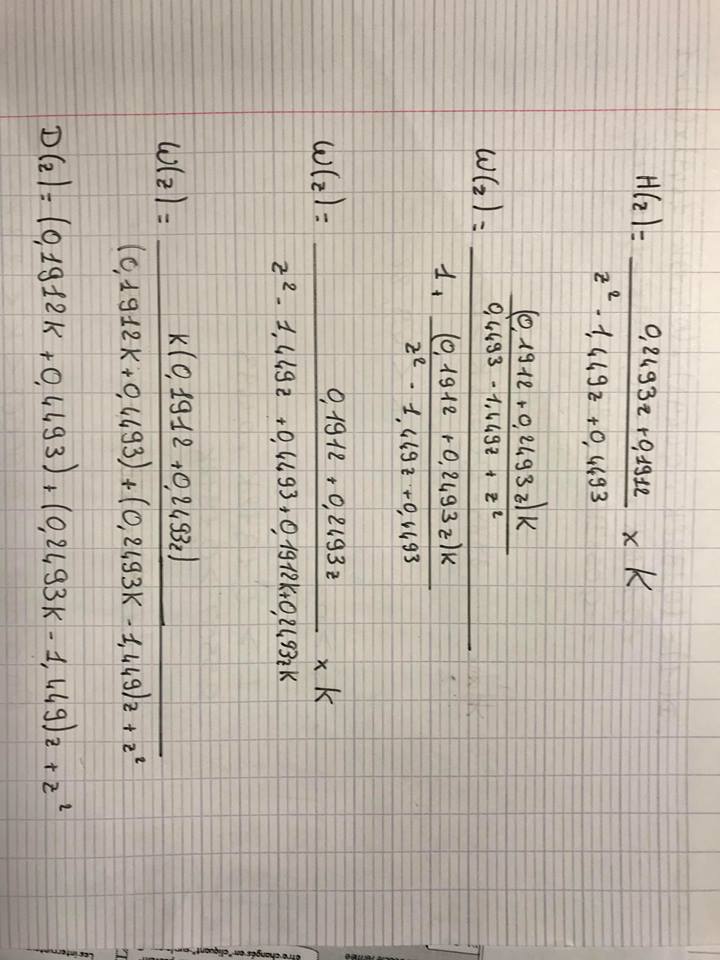 H(z) = (0,2493z + 0,1912) / (z² - 1,449z + 0,4493) x K
W(z) = ((0,1912 + 0,2493z)K / (0,4493 - 1,449z + z²)) / (1 + (0,1912 + 0,2493z)K / (z² - 1,449z + 0,4493))
W(z) = (0,1912 + 0,2493z) / (z² - 1,449z + 0,4493 + 0,1912K + 0,2493zK) x K
W(z) = K(0,1912 + 0,2493z) / ((0,1912K + 0,4493) + (0,2493K - 1,449)z + z²)
D(z) = (0,1912K + 0,4493) + (0,2493K - 1,449)z + z²
être changés en "cliquant"